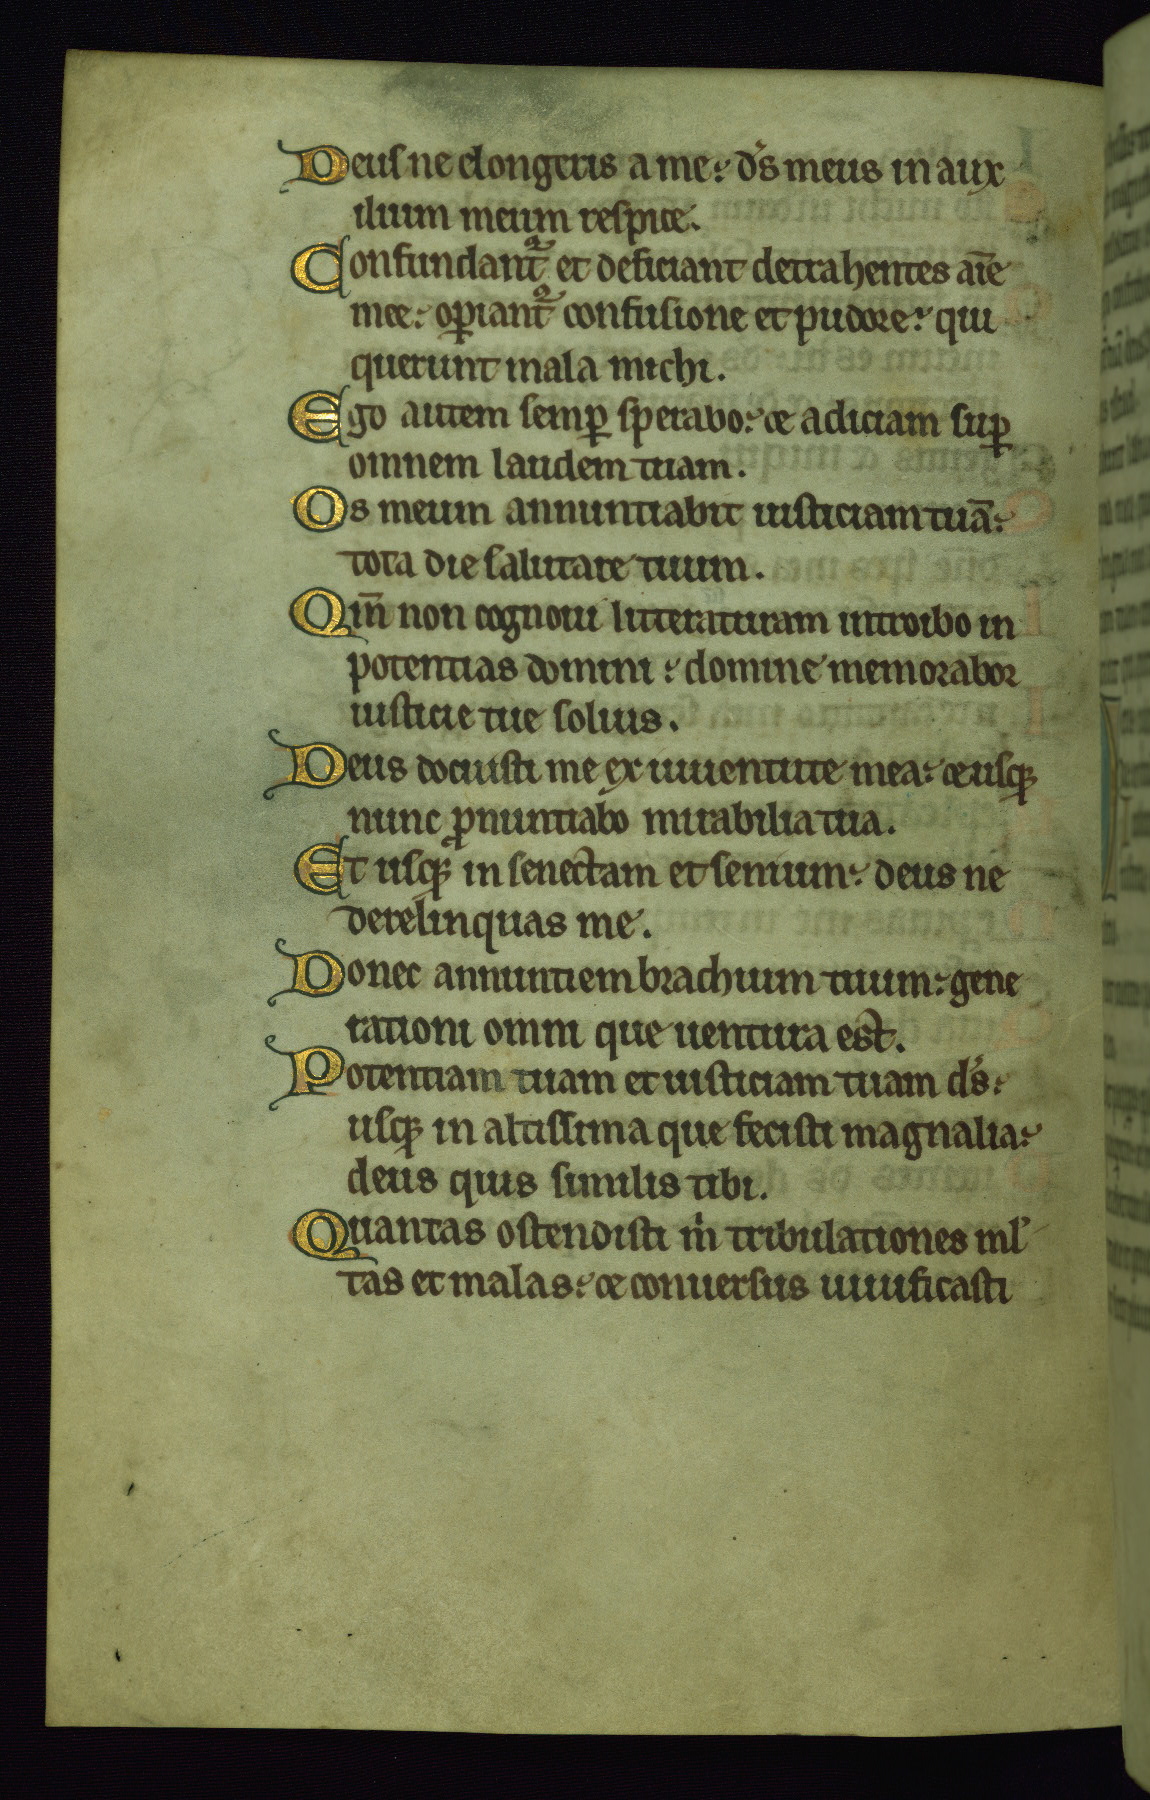 Deus ne elongeris a me: d̄s meus in aux
ilium meum respice.
Confundant᷑ et deficiant detrahentes aīe
mee: op̄iant᷑ confusione et pudore: qui
querunt mala michi.
Ego autem semp̄ sperabo: et adiciam sup̄
omnem laudem tuam.
Os meum annuntiabit iusticiam tuā:
tota die salutare tuum.
Qm̄ non cognoui litteraturam introibo in
potentias domini: domine memorabor
iusticie tue solius.
Deus docuisti me ex iuuentute mea: et usq́
nunc ꝓnuntiabo mirabilia tua.
Et usq́ in senectam et senium: deus ne
derelinquas me.
Donec annuntiem brachium tuum: gene
rationi omni que uentura est.
Potentiam tuam et iusticiam tuam d̄s:
usq́ in altissima que fecisti magnalia:
deus quis similis tibi.
Quantas ostendisti m̍ tribulationes ml̓
tas et malas: et conuersus uiuificasti